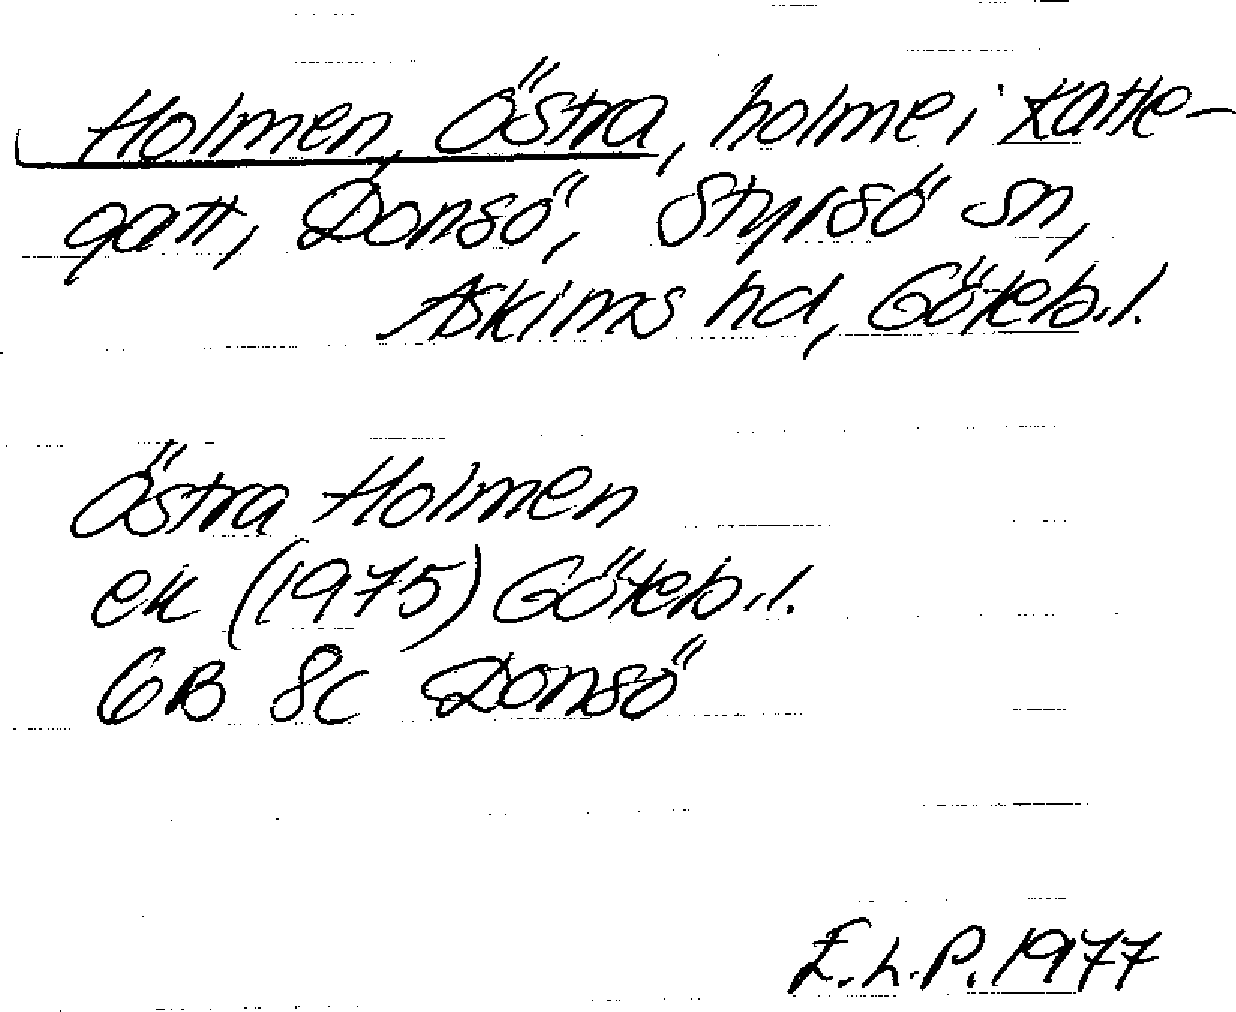 Holmen, Östra, holme i Katte-
gatt, Donsö, Styrsö sn,
Askims hd, Göteb.l.
Östra Holmen
ek (1975) Göteb.l.
6B 8c Donsö
E.h.P. 1977